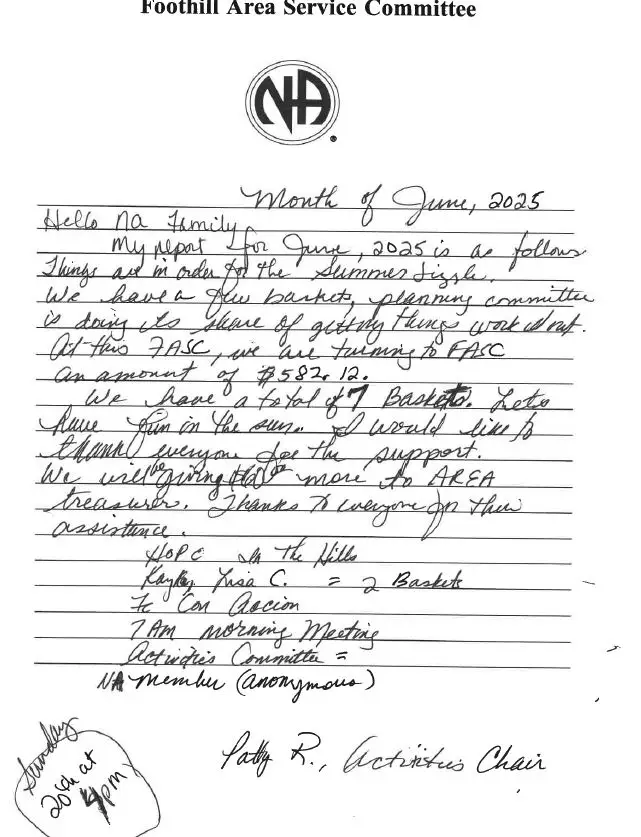 Foothill Area Service Committee
NA
Month of June, 2025
Hello NA Family
My report for June, 2025 is as follows
Things are in order for the Summer Sizzle.
We have a few baskets, planning committee
is doing its share of getting things worked out.
At this FASC, we are turning to FASC
an amount of $582.12.
We have a total of 7 Baskets. Let's
have fun in the sun. I would like to
thank everyone for the support.
We will be giving more to AREA
treasurer. Thanks to everyone for their
assistance.
HOPE In The Hills
Lisa C. = 2 Baskets
Fe Con Accion
7 Am morning Meeting
Activities Committee =
NA member (anonymous)
Patty R., Activities Chair
Sunday
20th at
4pm